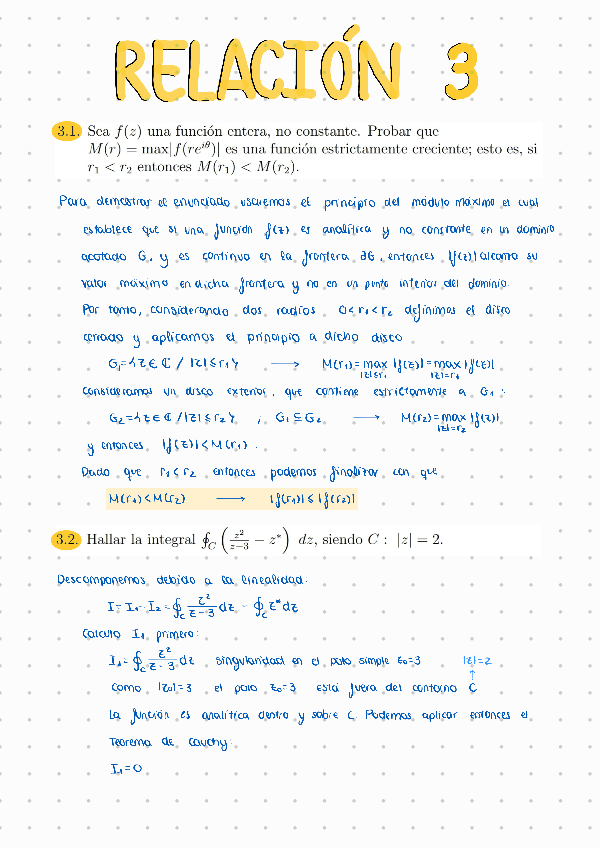 RELACIÓN 3
3.1. Sea f(z) una función entera, no constante. Probar que
M(r) = max|f(re^{iθ})| es una función estrictamente creciente; esto es, si
r₁ < r₂ entonces M(r₁) < M(r₂).
Para demostrar el enunciado usaremos el principio del módulo máximo el cual
establece que si una función f(z) es analítica y no constante en un dominio
acotado G, y es continua en la frontera ∂G, entonces |f(z)| alcanza su
valor máximo en dicha frontera y no en un punto interior del dominio.
Por tanto, considerando dos radios 0<r₁<r₂ definimos el disco
cerrado y aplicamos el principio a dicho disco
G₁={z∈ℂ / |z|≤r₁} ⟶ M(r₁)= max |f(z)| = max |f(z)|
|z|≤r₁ |z|=r₁
Consideramos un disco exterior, que contiene estrictamente a G₁:
G₂={z∈ℂ / |z|≤r₂} ; G₁⊆G₂ ⟶ M(r₂)= max |f(z)|
|z|=r₂
y entonces |f(z)|<M(r₁).
Dado que r₁<r₂ entonces podemos finalizar con que
M(r₁)<M(r₂) ⟶ |f(r₁)|≤|f(r₂)|
3.2. Hallar la integral ∮_C (z²/(z−3) − z*) dz, siendo C : |z| = 2.
Descomponemos debido a la linealidad:
I=I₁-I₂=∮_C z²/(z-3) dz - ∮_C z* dz
Calculo I₁ primero:
I₁=∮_C z²/(z-3) dz singularidad en el polo simple z₀=3 |z|=2
como |z₀|=3 el polo z₀=3 está fuera del contorno C
La función es analítica dentro y sobre C. Podemos aplicar entonces el
Teorema de Cauchy:
I₁=0